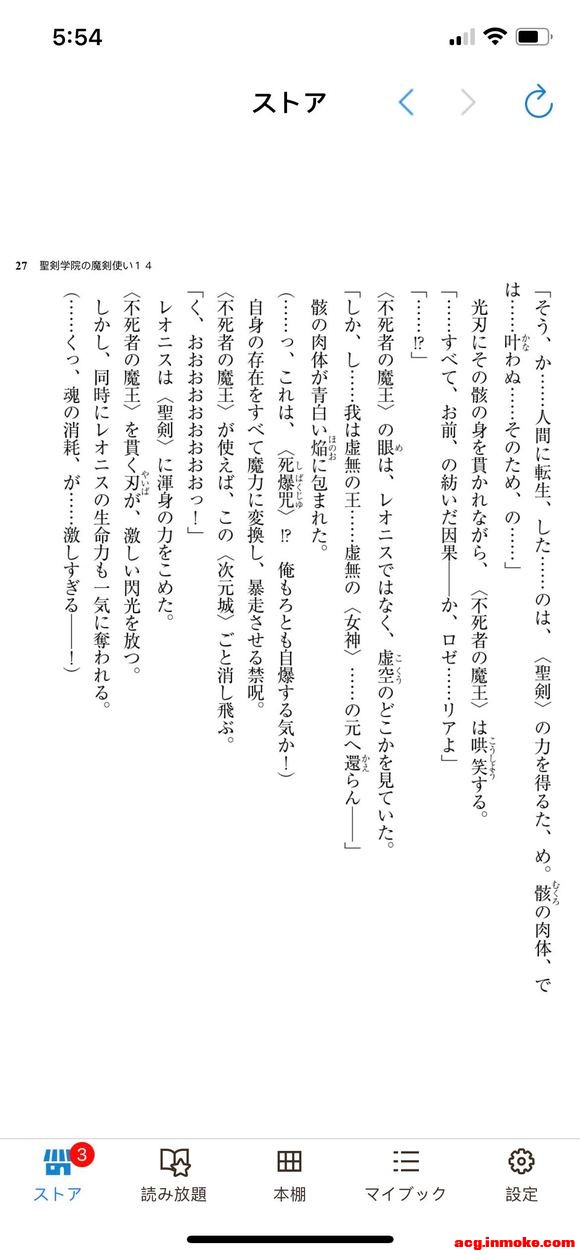 5:54
ストア
27 聖剣学院の魔剣使い14
「そう、か……人間に転生、した……のは、〈聖剣〉の力を得るた、め。骸の肉体、で
は……叶わぬ……そのため、の……」
光刃にその骸の身を貫かれながら、〈不死者の魔王〉は哄笑する。
「……すべて、お前、の紡いだ因果――か、ロゼ……リアよ」
「……!?」
〈不死者の魔王〉の眼は、レオニスではなく、虚空のどこかを見ていた。
「しか、し……我は虚無の王……虚無の〈女神〉……の元へ還らん――」
骸の肉体が青白い焔に包まれた。
(……っ、これは、〈死爆咒〉!? 俺もろとも自爆する気か!)
自身の存在をすべて魔力に変換し、暴走させる禁呪。
〈不死者の魔王〉が使えば、この〈次元城〉ごと消し飛ぶ。
「く、おおおおおおおおおっ!」
レオニスは〈聖剣〉に渾身の力をこめた。
〈不死者の魔王〉を貫く刃が、激しい閃光を放つ。
しかし、同時にレオニスの生命力も一気に奪われる。
(……くっ、魂の消耗、が……激しすぎる――!)
3
ストア
読み放題
本棚
マイブック
設定
acg.inmoke.com